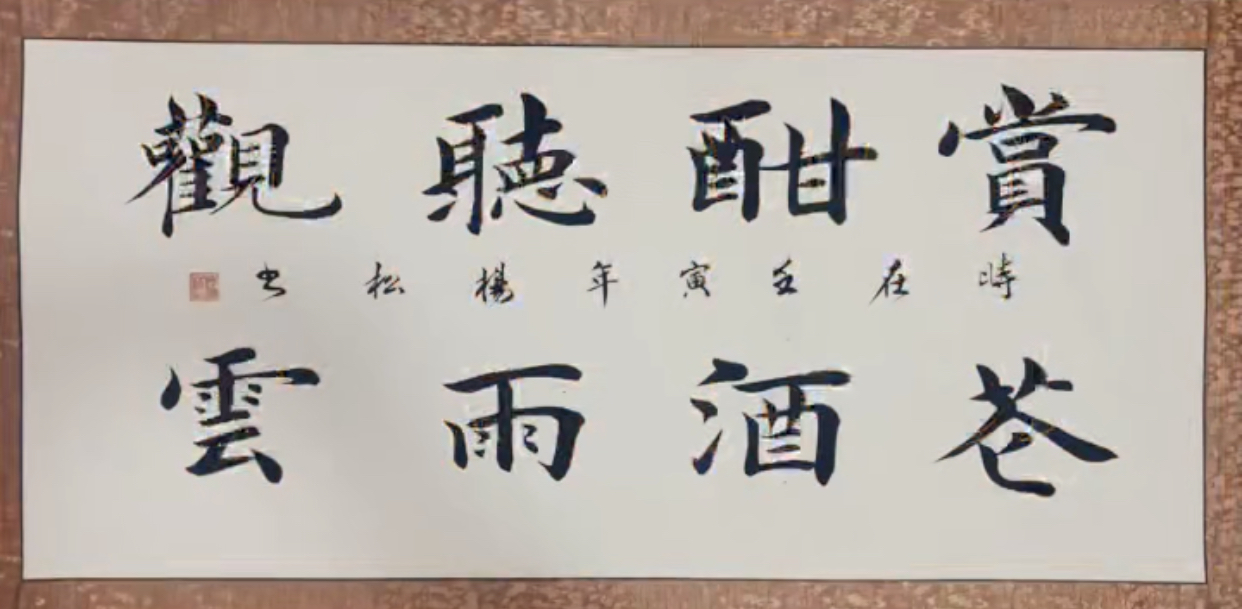 賞酣聽觀
時在壬寅年楊松书
苍酒雨雲